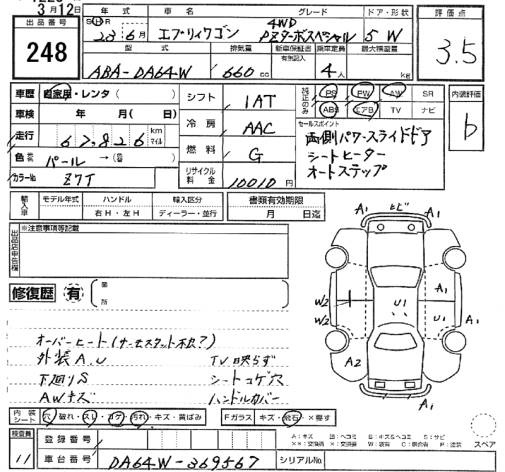 3月12日
出品番号
248
年式 車名 グレード ドア・形状
23年6月 エブリィワゴン 4WD PZターボスペシャル 5 W
型式 排気量 新車保証書 有無記入 乗車定員 最大積載量
ABA-DA64W 660cc 4人 kg
評価点
3.5
車歴 自家用・レンタ( )
車検 年 月( )
走行 67,826 km マイル
色 パール →( 色)
カラーNo Z7T
シフト 1AT
冷房 AAC
燃料 G
リサイクル料金 10010円
純正のみ PS PW AW SR
ABS エアB TV ナビ
セールスポイント
両側パワースライドドア
シートヒーター
オートステップ
内装評価
b
輸入車 モデル年式 ハンドル 輸入区分
右H・左H ディーラー・並行
書類有効期限
月 日迄
出品店申告欄
※注意事項等記載
修復歴 有 箇所
オーバーヒート(サーモスタット不良?)
外装A.U TV映らず
下廻りS シートコゲ穴
AWキズ ハンドルカバー
A1 ヒビ A1
W2
W2
U1
A1
U1
A1
A2
A1
A1
内装シート 穴 破れ・スレ・コゲ・汚れ・キズ・黄ばみ
Fガラス キズ・飛石・×要す
スペア
検査員
11
登録番号
車台番号 DA64W-369567
シリアルNo
A:キズ U:ヘコミ B:キズ&ヘコミ S:サビ